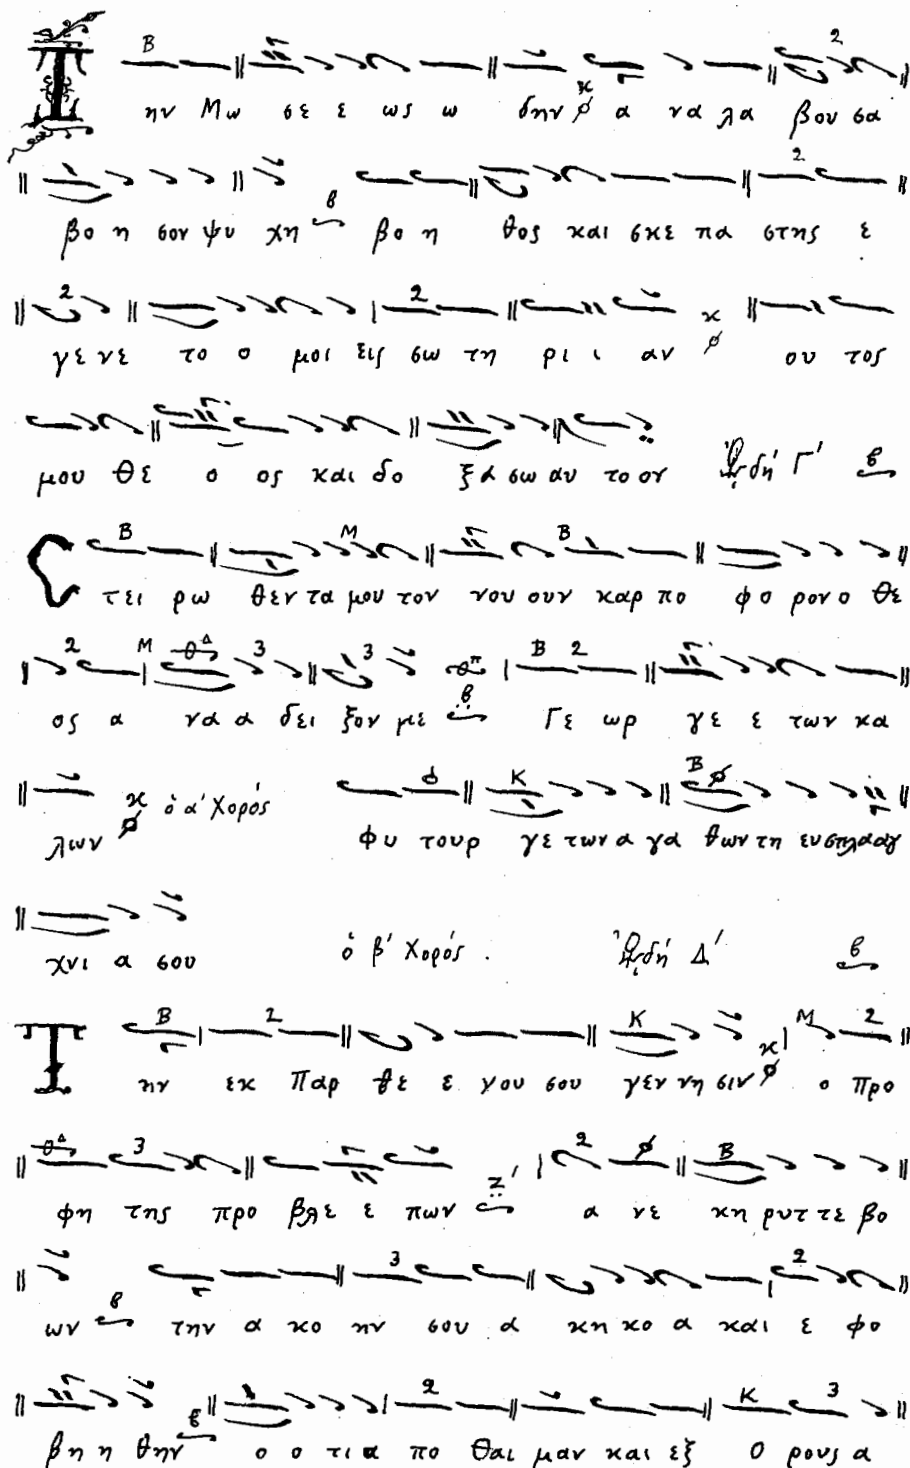 Την Μω σε ε ως ω δην α να λα βου σα
βο η σον ψυ χη βο η θος και σκε πα στης ε
γε νε το ο μοι εις σω τη ρι ι αν ου τος
μου θε ο ος και δο ξα σω αυ το ον ᾨδή Γ΄
Στει ρω θεν τα μου τον νου ουν καρ πο φο ρον ο θε
ος α να α δει ξον με Γε ωρ γε ε των κα
λων ὁ α΄ Χορός φυ τουρ γε των α γα θων τη ευσπλααγ
χνι α σου ὁ β΄ Χορός . ᾨδή Δ΄
Την εκ Παρ θε ε νου σου γεν νη σιν ο προ
φη της προ βλε ε πων α νε κη ρυτ τε βο
ων την α κο ην σου α κη κο α και ε φο
βη η θην ο ο τι α πο θαι μαν και εξ ο ρους α